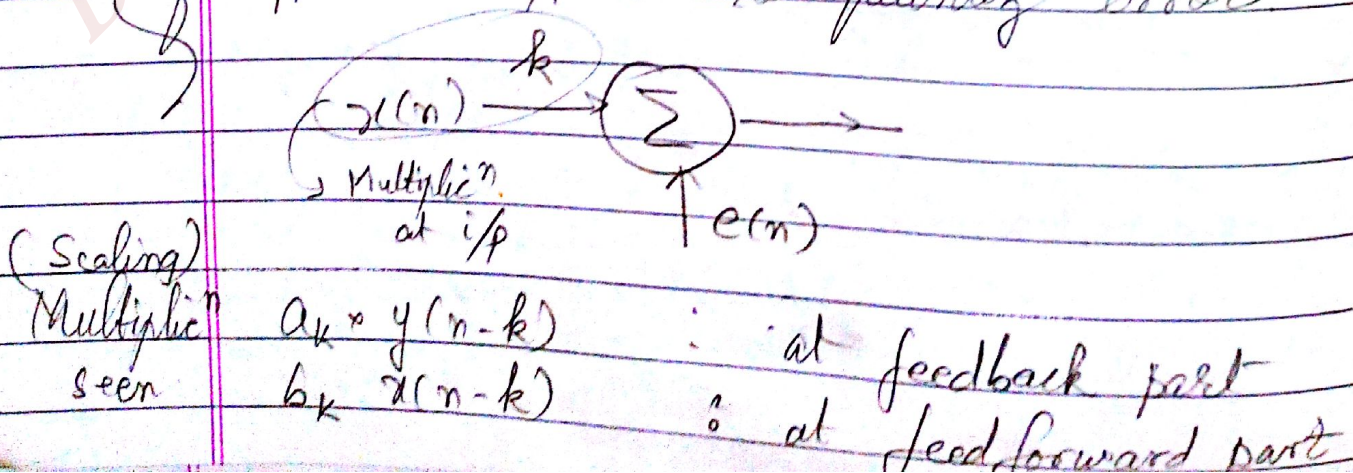 k
x(n) → Σ →
Multiplicⁿ
at i/p
↑ e(n)
(Scaling)
Multiplicⁿ aₖ × y(n-k) : at feedback part
seen bₖ x(n-k) : at feedforward part